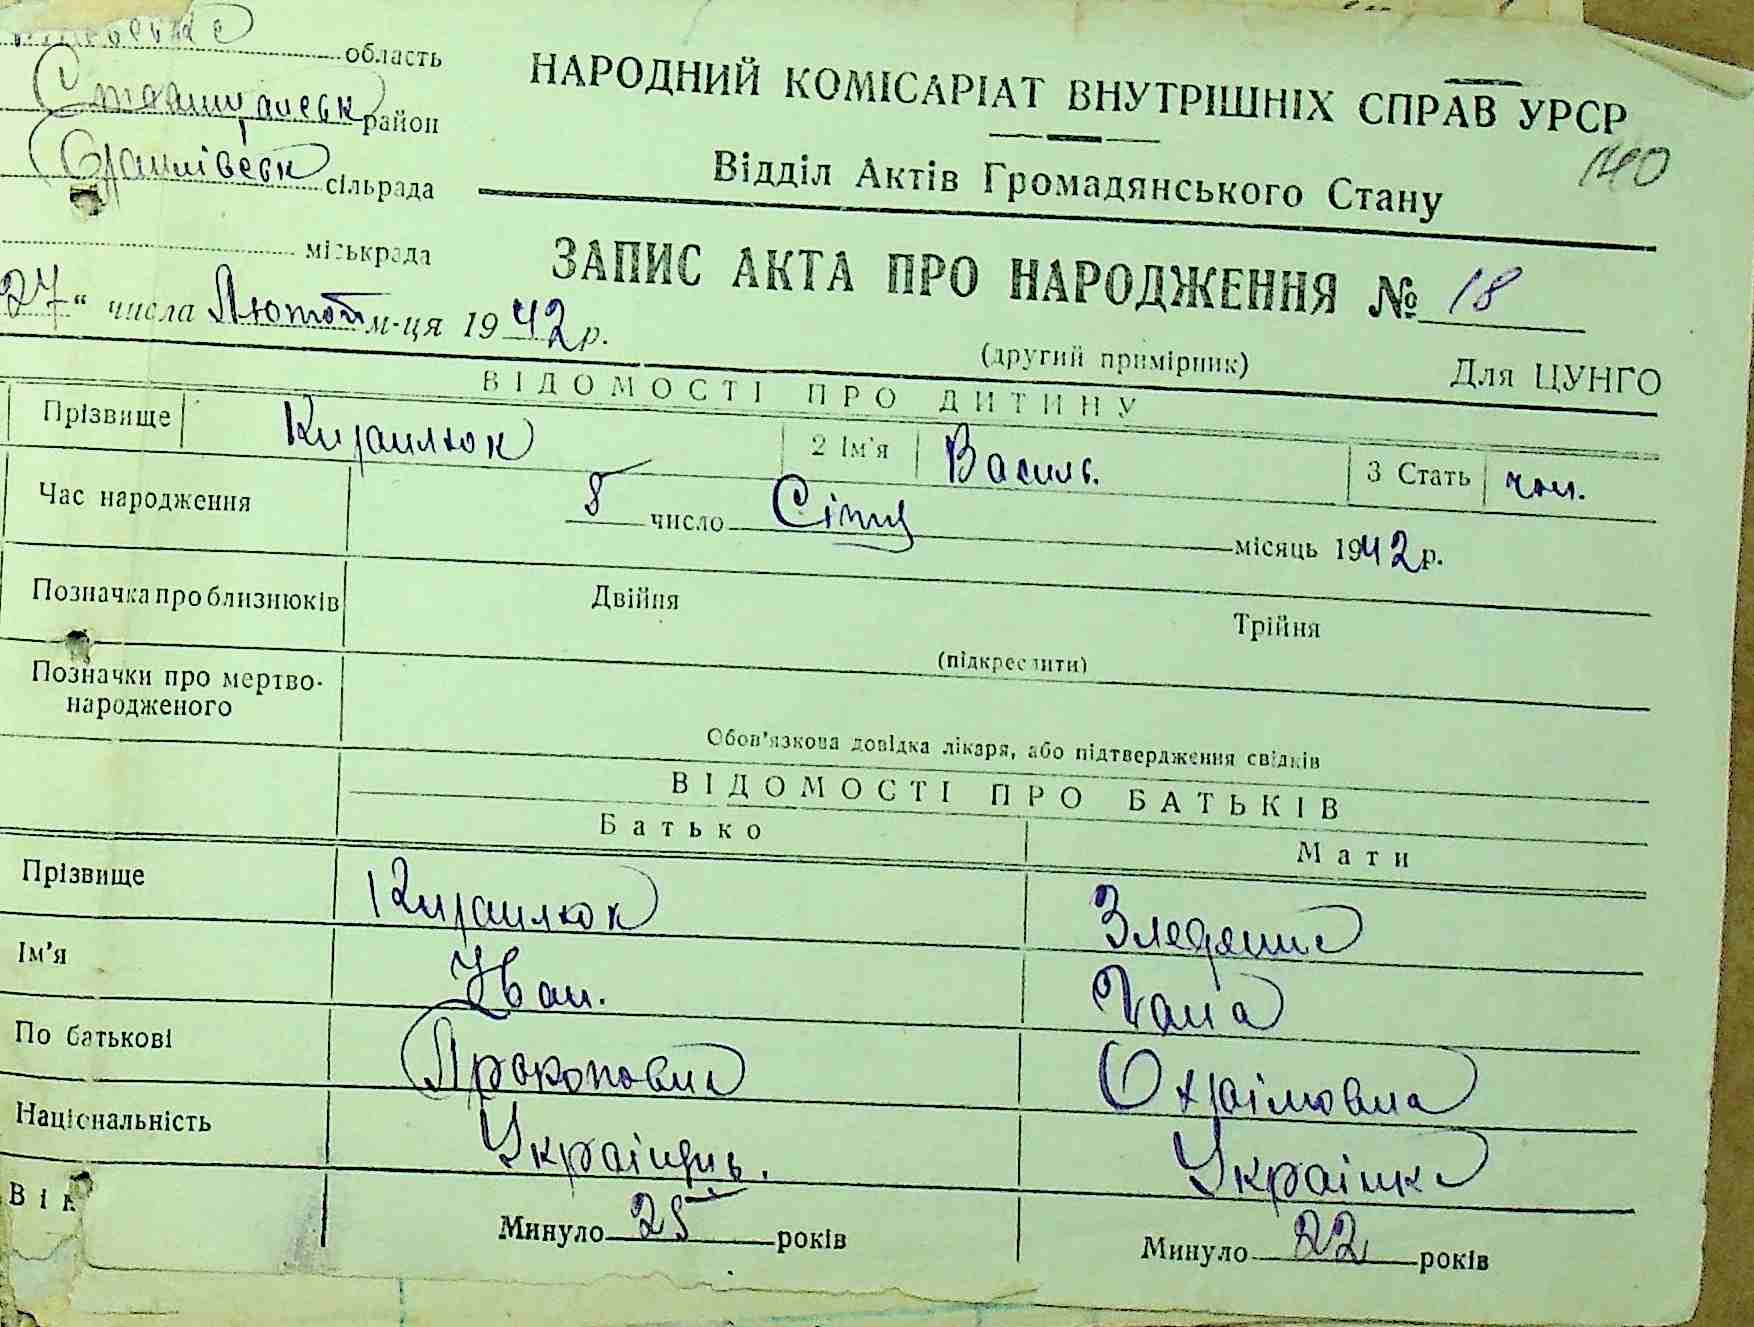 область
НАРОДНИЙ КОМІСАРІАТ ВНУТРІШНІХ СПРАВ УРСР
район
140
сільрада
Відділ Актів Громадянського Стану
міськрада
ЗАПИС АКТА ПРО НАРОДЖЕННЯ № 18
27 " числа Лютого м-ця 1942 р.
(другий примірник) Для ЦУНГО
ВІДОМОСТІ ПРО ДИТИНУ
Прізвище Кираилюк 2 Ім'я Василь. 3 Стать чол.
Час народження 5 число Січня місяць 1942 р.
Позначка про близнюків Двійня Трійня
(підкреслити)
Позначки про мертво-
народженого
Обов'язкова довідка лікаря, або підтвердження свідків
ВІДОМОСТІ ПРО БАТЬКІВ
Батько Мати
Прізвище Кираилюк
Ім'я Иван. Гана
По батькові Прокопович Охраімовна
Національність Украінець. Украінка
Вік Минуло 25 років Минуло 22 років